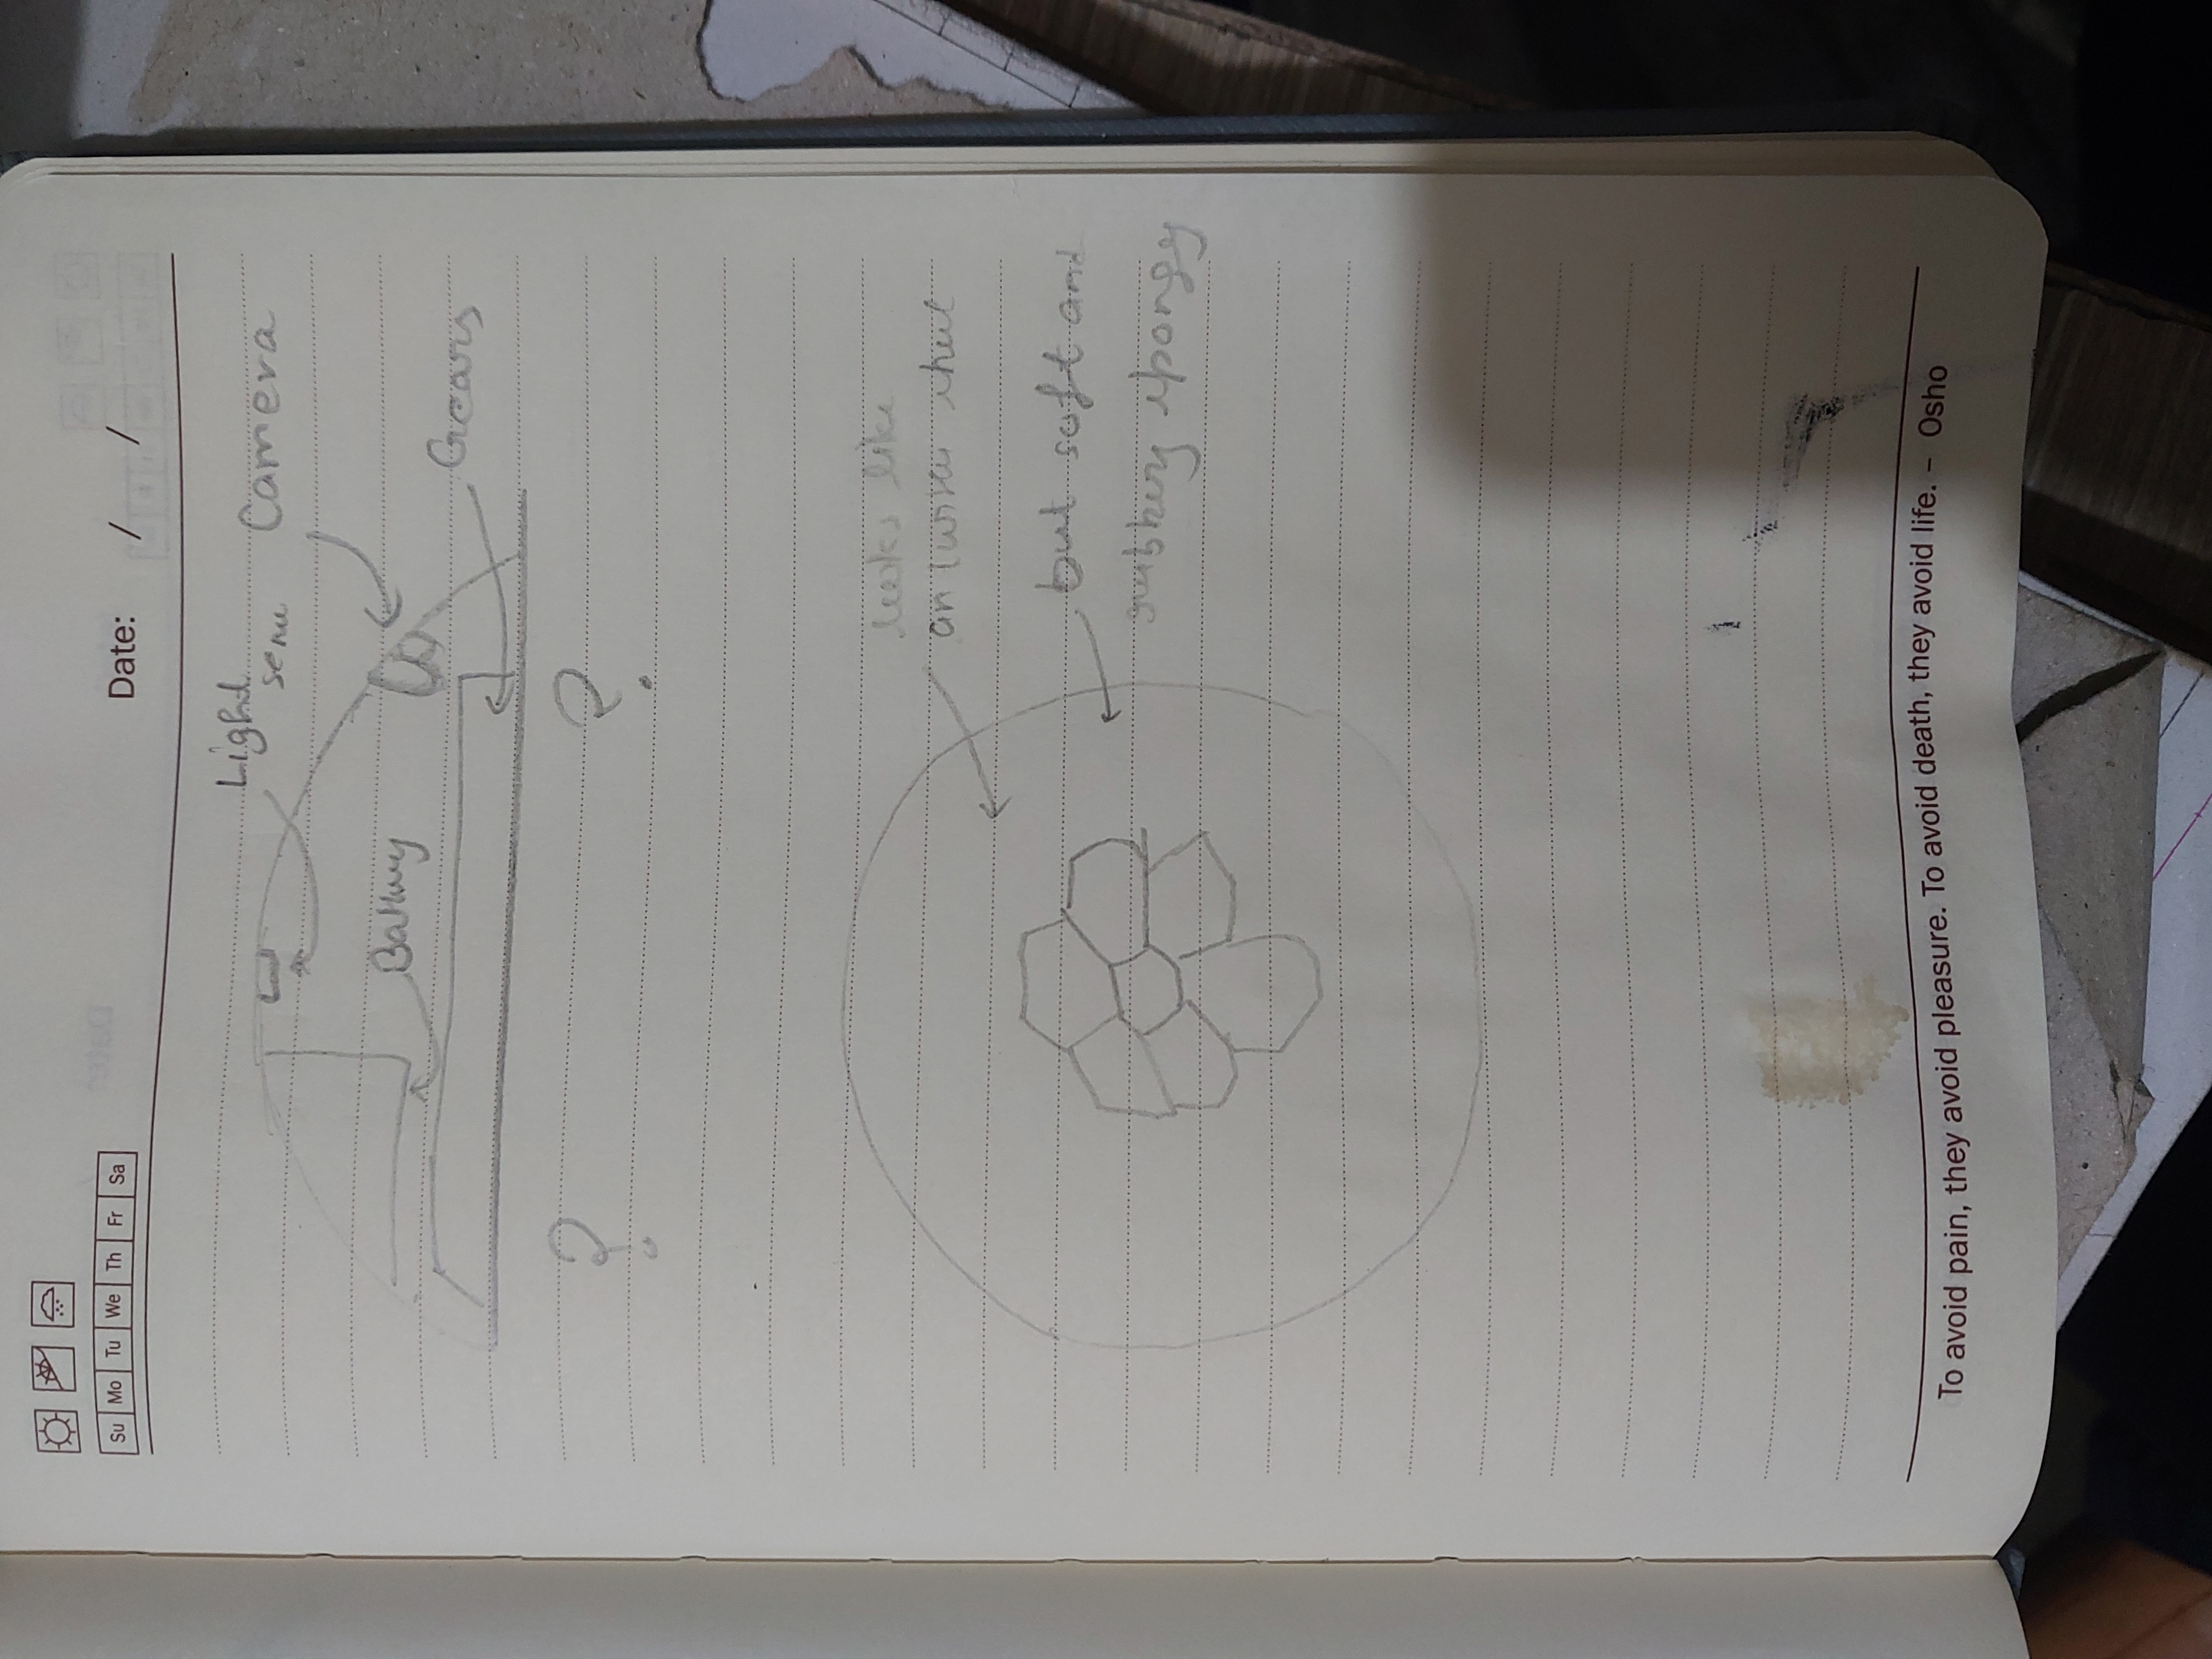 Su Mo Tu We Th Fr Sa
Date: / /
Light
Camera
Battery
Gears
? ?
looks like
an
but soft and
rubbery spongy
To avoid pain, they avoid pleasure. To avoid death, they avoid life. – Osho